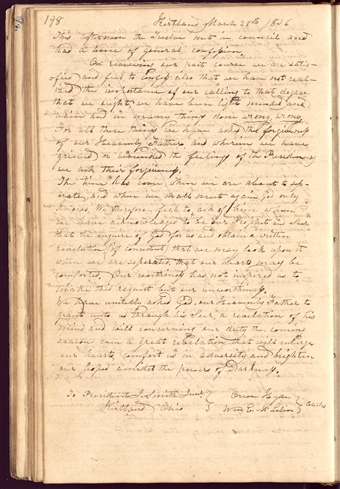 198
Kirtland March 28th 1836
This afternoon the Twelve met in council and
had a time of general confession.
On reviewing our past course we are satis-
fied and feel to confess also that we have not real-
ized the importance of our calling to that degree
that we ought, we have been light minded and
vain and in many things done wrong, wrong.
For all these things we have asked the forgiveness
of our Heavenly Father, and wherein we have
grieved or wounded the feelings of the Presidency
we ask their forgiveness.
The time has come when we are about to sep-
arate, and when we shall meet again, God only
knows. We therefore feel to ask of him whom
we have acknowledged to be our Prophet and Seer
that he inquire of God for us and obtain a written
revelation (if consistent) that we may look upon it
when we are separated, that our hearts may be
comforted. Our worthiness has not inspired us to
make this request but our unworthiness.
We have unitedly asked God our Heavenly Father to
grant unto us through his Seer, a revelation of his
mind and will concerning our duty the coming
season even a great revelation that will enlarge
our hearts, comfort us in adversity and brighten
our hopes amidst the powers of Darkness.
To President J. Smith Junr
Kirtland Ohio
Orson Hyde
Wm E. McLellin
Clerks